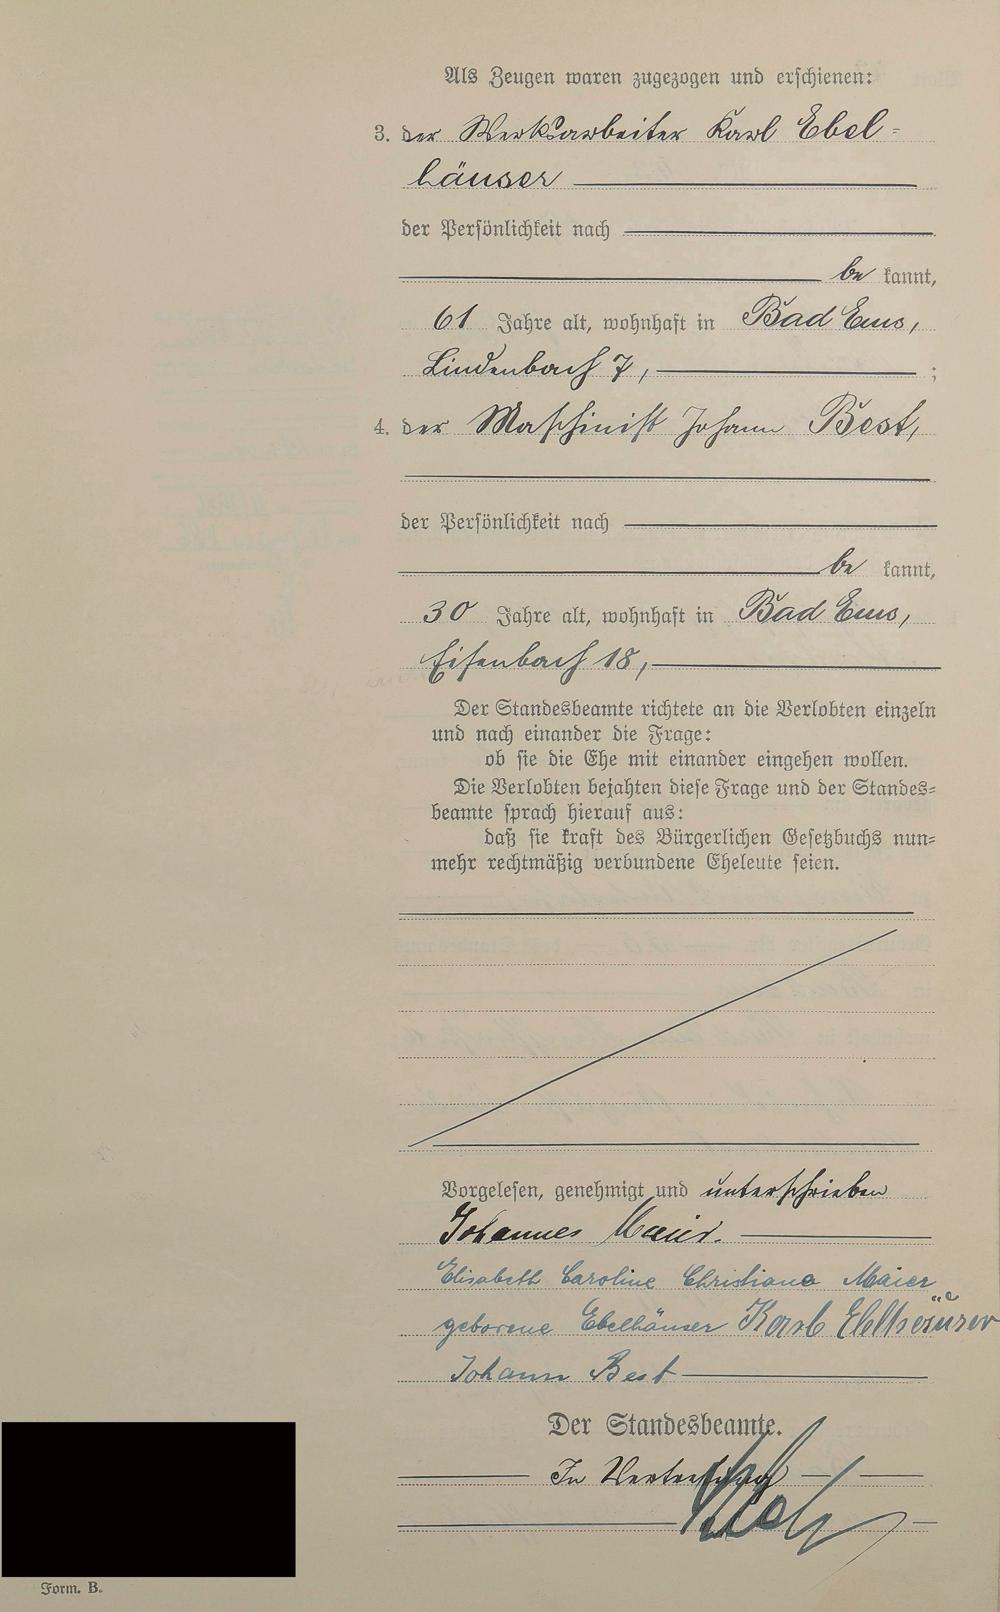 Als Zeugen waren zugezogen und erschienen:
3. der Werksarbeiter Karl Ebel=
häuser
der Persönlichkeit nach
be kannt,
61 Jahre alt, wohnhaft in Bad Ems,
Lindenbach 7, ;
4. der Maschinist Johann Best,
der Persönlichkeit nach
be kannt,
30 Jahre alt, wohnhaft in Bad Ems,
Eisenbach 18,
Der Standesbeamte richtete an die Verlobten einzeln
und nach einander die Frage:
ob sie die Ehe mit einander eingehen wollen.
Die Verlobten bejahten diese Frage und der Standes=
beamte sprach hierauf aus:
daß sie kraft des Bürgerlichen Gesetzbuchs nun=
mehr rechtmäßig verbundene Eheleute seien.
Vorgelesen, genehmigt und unterschrieben
Johannes Maier.
Elisabeth Caroline Christiana Maier
geborene Ebelhäuser Karl Ebelhäuser
Johann Best
Der Standesbeamte.
In Vertretung
Form. B.